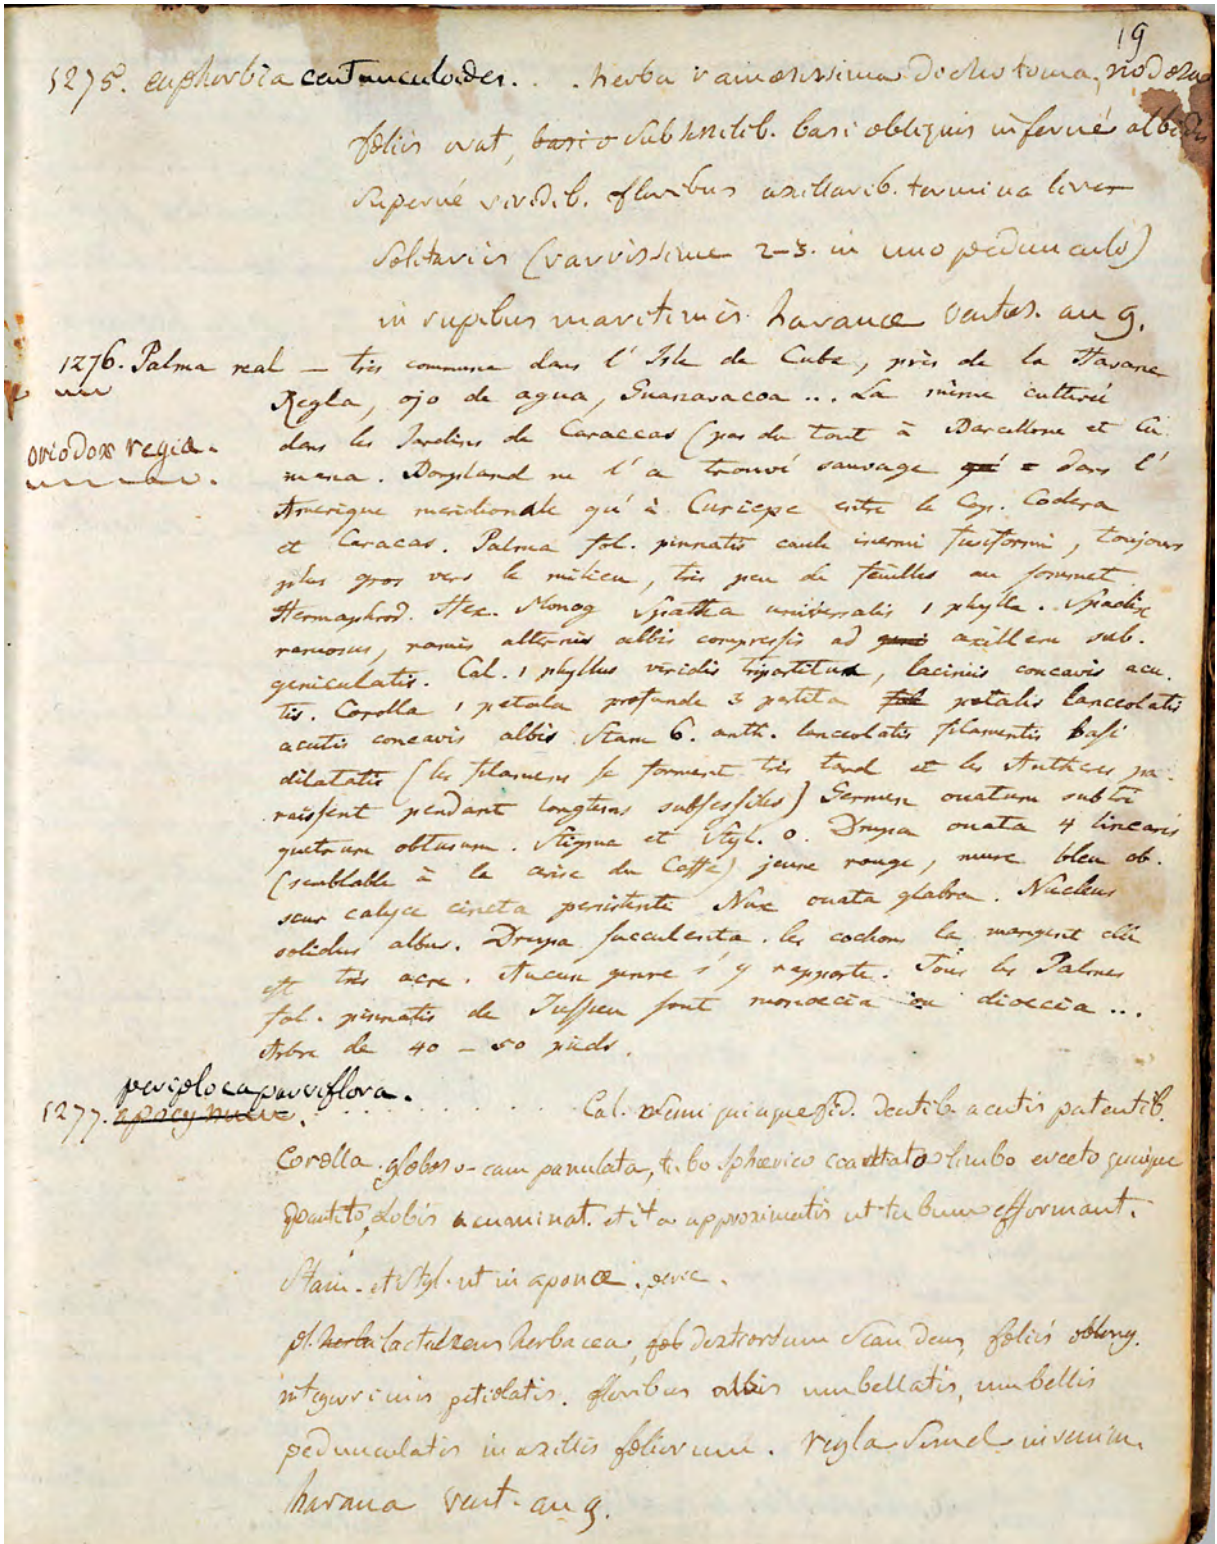 19
1275. euphorbia centunculoides. . . herba ramosissima dichotoma, nodosa
foliis ovat, basi o subsessilib. basi obliquis infernè albidis
supernè viridib. floribus axillarib. terminalever
solitariis (rarissime 2-3. in uno pedunculo)
in rupibus maritimis havanae ventos. an 9.
1276. Palma real — très commune dans l' Isle de Cube, près de la Havane
Regla, ojo de agua, Guanavacoa ... La même cultivé
oriodox regia.
dans les Jardins de Caraccas (pas du tout à Barcellone et Cu
mana. Bonpland ne l' a trouvé sauvage qé = dans l'
Amerique meridionale qu' à Curiepe entre le Cap. Codera
et Caracas. Palma fol. pinnatis caule inermi fusiformi, toujours
plus gros vers le milieu, très peu de feuilles au sommet
Hermaphrod. Hex. Monog Spatha universalis 1 phylla. Spadix
ramosus, ramis alternis albis compressis ad geni axillem sub.
geniculatis. Cal. 1 phyllus viridis tripartitus, laciniis concavis acu.
tis. Corolla 1 petala profunde 3 partita fol petalis lanceolatis
acutis concavis albis Stam 6. anth. lanceolatis filamentis basi
dilatatis (les filamens se forment très tard et les Antheres pa.
raissent pendant longtems subsessiles) Germen ovatum subtri
quetrum obtusum. Stigma et Styl. 0. Drupa ovata 4 linearis
(semblable à la cerise du Caffe) jeune rouge, mure bleu ob.
scur calyce cincta persistente Nux ovata glabra. Nucleus
solidus albus. Drupa succulenta. les cochons la mangent elle
est très acre. Aucun genre s' y rapporte. Tous les Palmes
fol. pinnatis de Jussieu sont monoecia ou dioecia ...
Arbre de 40 – 50 pieds.
periploca parviflora.
1277. apocynum. . . . . . . . . Cal. semi quinquefid. dentib. acutis patentib.
Corolla globoso-campanulata, tubo sphaerico coarctato limbo erecto quinque
partito, lobis acuminat. et ita approximatis ut tubum efformant.
Stam. et Styl. ut in apocae. .
pl. herba lactescens herbacea, fol dextrorsum scandens, foliis oblong.
integerrimis petiolatis. floribus albis umbellatis, umbellis
pedunculatis in axillis foliorum. regla semel invenim.
havana vent. an 9.